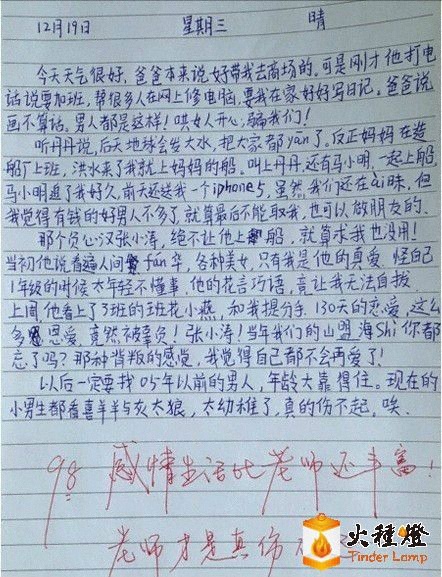 12月19日 星期三 晴
今天天气很好,爸爸本来说好带我去商场的。可是刚才他打电
话说要加班,帮很多人在网上修电脑,要我在家好好写日记。爸爸说
画不算话。男人都是这样!哄女人开心,骗我们!
听丹丹说,后天地球会发大水,把大家都yān了。反正妈妈在造
船厂上班,洪水来了我就上妈妈的船。叫上丹丹还有马小明,一起上船。
马小明追了我好久,前天还送我一个iphone5,虽然我们还在ài昧,但
我觉得有钱的好男人不多了,就算最后不能取我,也可以做朋友的。
那个负心汉张小涛,绝不让他上船,就算求我也没用!
当初他说看遍人间fán华,各种美女,只有我是他的真爱,怪自己
1年级的时候太年轻不懂事,他的花言巧语,竟让我无法自拔。
上周他看上了3班的班花小燕,和我提分手,130天的恋爱,这么
多恩爱,竟然被辜负!张小涛!当年我们的山盟海Shi你都
忘了吗?那种背叛的感觉,我觉得自己都不会再爱了!
以后一定要找05年以前的男人,年龄大靠得住。现在的
小男生都看喜羊羊与灰太狼,太幼稚了,真的伤不起,唉。
98 感情生活比老师还丰富!
老师才是真伤
火種燈
Finder Lamp